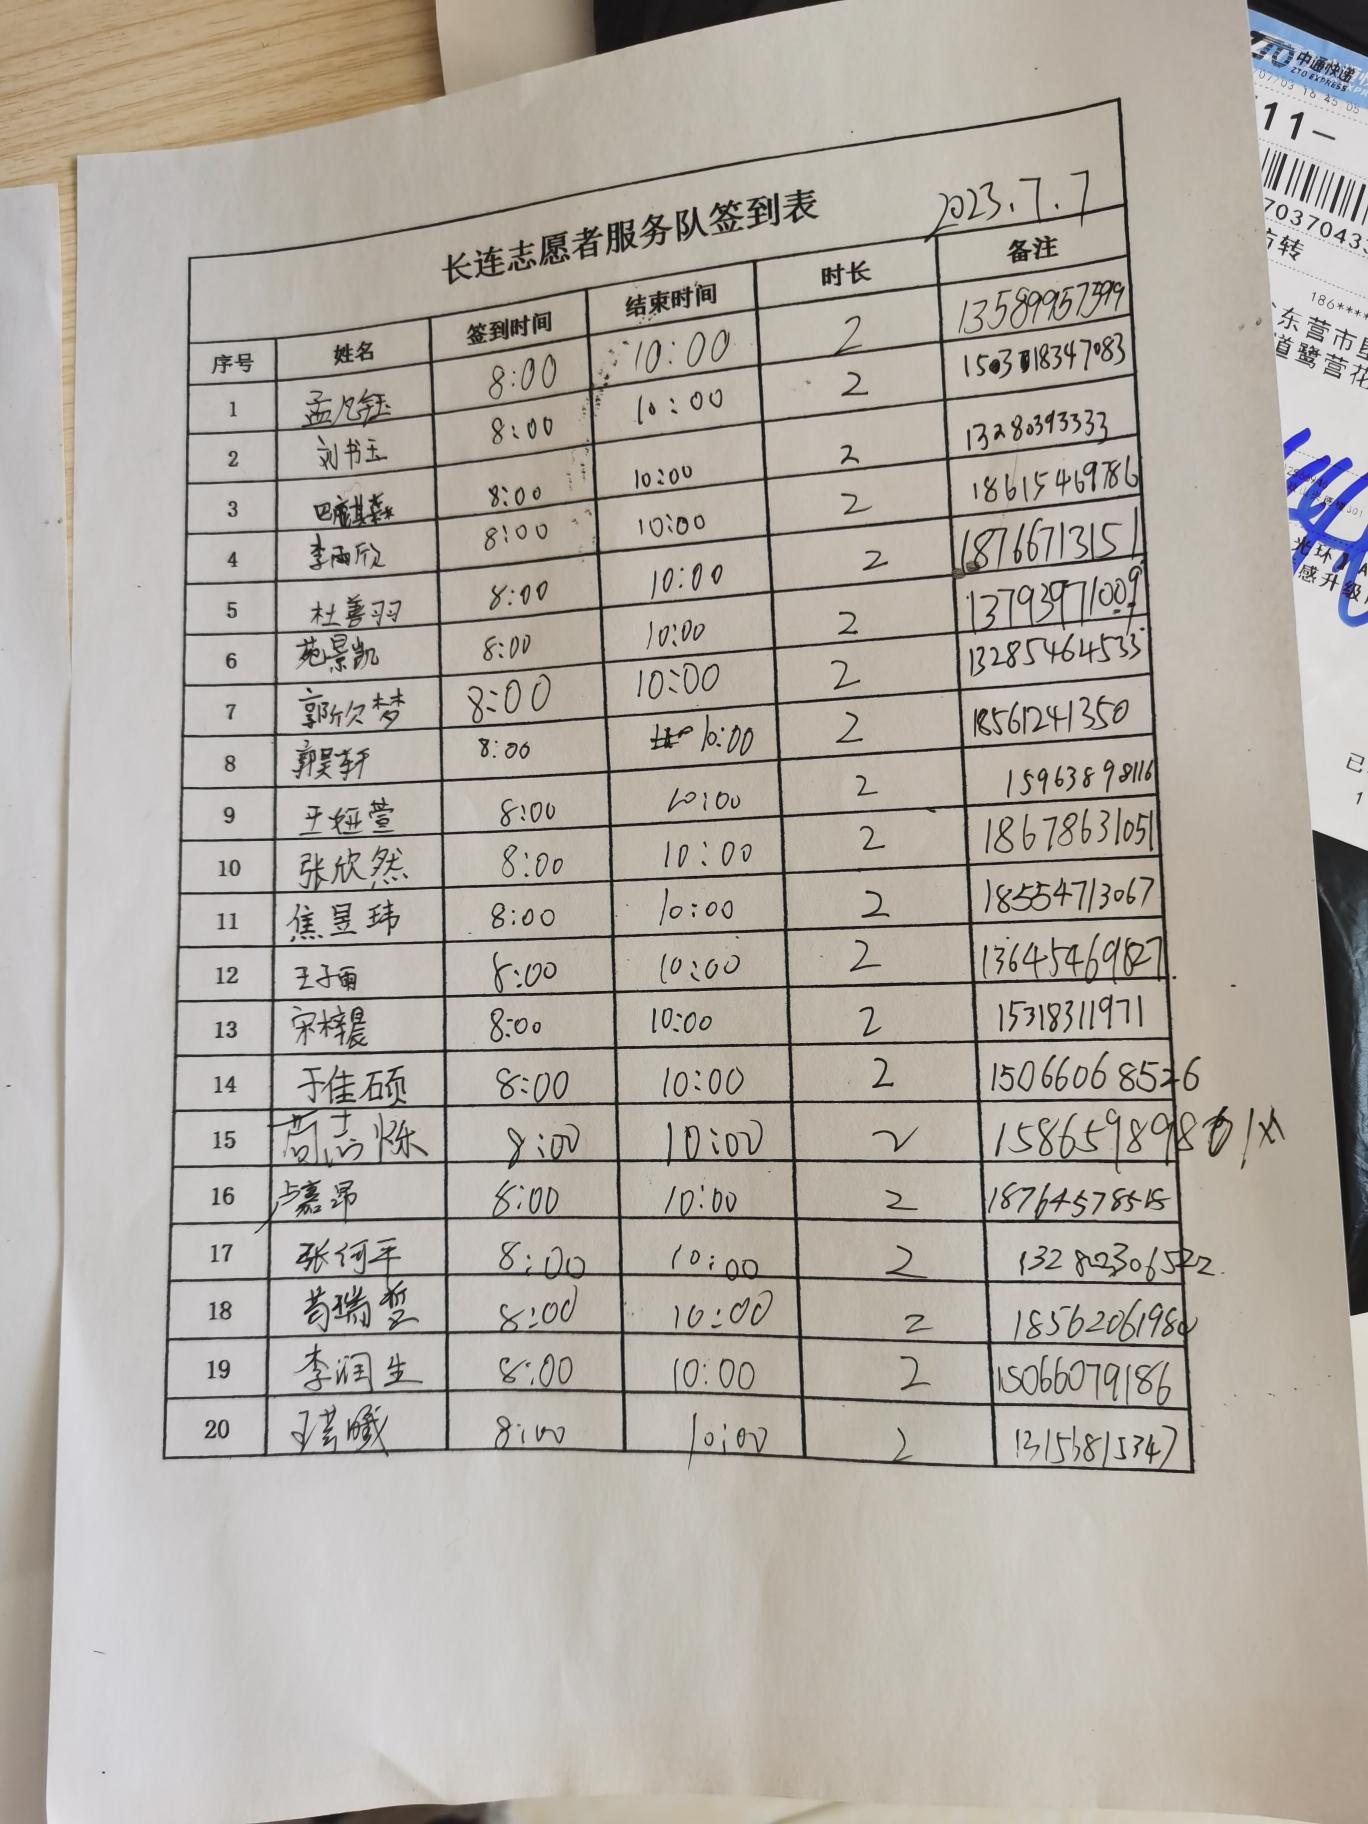 长连志愿者服务队签到表
2023.7.7
序号 姓名 签到时间 结束时间 时长 备注
1 孟凡钰 8:00 10:00 2 13589957599
2 刘书玉 8:00 10:00 2
3 8:00 10:00 2 13280393333
4 李雨欣 8:00 10:00 2 18615469786
5 杜善羽 8:00 10:00 2 18766713151
6 苑景凯 8:00 10:00 2 13793971009
7 郭欣梦 8:00 10:00 2 13285464533
8 郭昊轩 8:00 10:00 2 18561241350
9 王娅萱 8:00 10:00 2 15963898116
10 张欣然 8:00 10:00 2 18678631051
11 焦昱玮 8:00 10:00 2 18554713067
12 王子雨 8:00 10:00 2 13645469827
13 宋梓晨 8:00 10:00 2 15318311971
14 于佳硕 8:00 10:00 2 15066068526
15 苘志烁 8:00 10:00 2
16 卢嘉昂 8:00 10:00 2 18764578515
17 张何平 8:00 10:00 2 132802306522
18 苟瑞哲 8:00 10:00 2 18562061980
19 李润生 8:00 10:00 2 15066079186
20 8:00 10:00 2 13156815347
ZTO 中通快递
ZTO EXPRESS
07/03 16:45:05
11-
7037043
转
186****
东营市
道鹭营花
光环
感升级
已
1